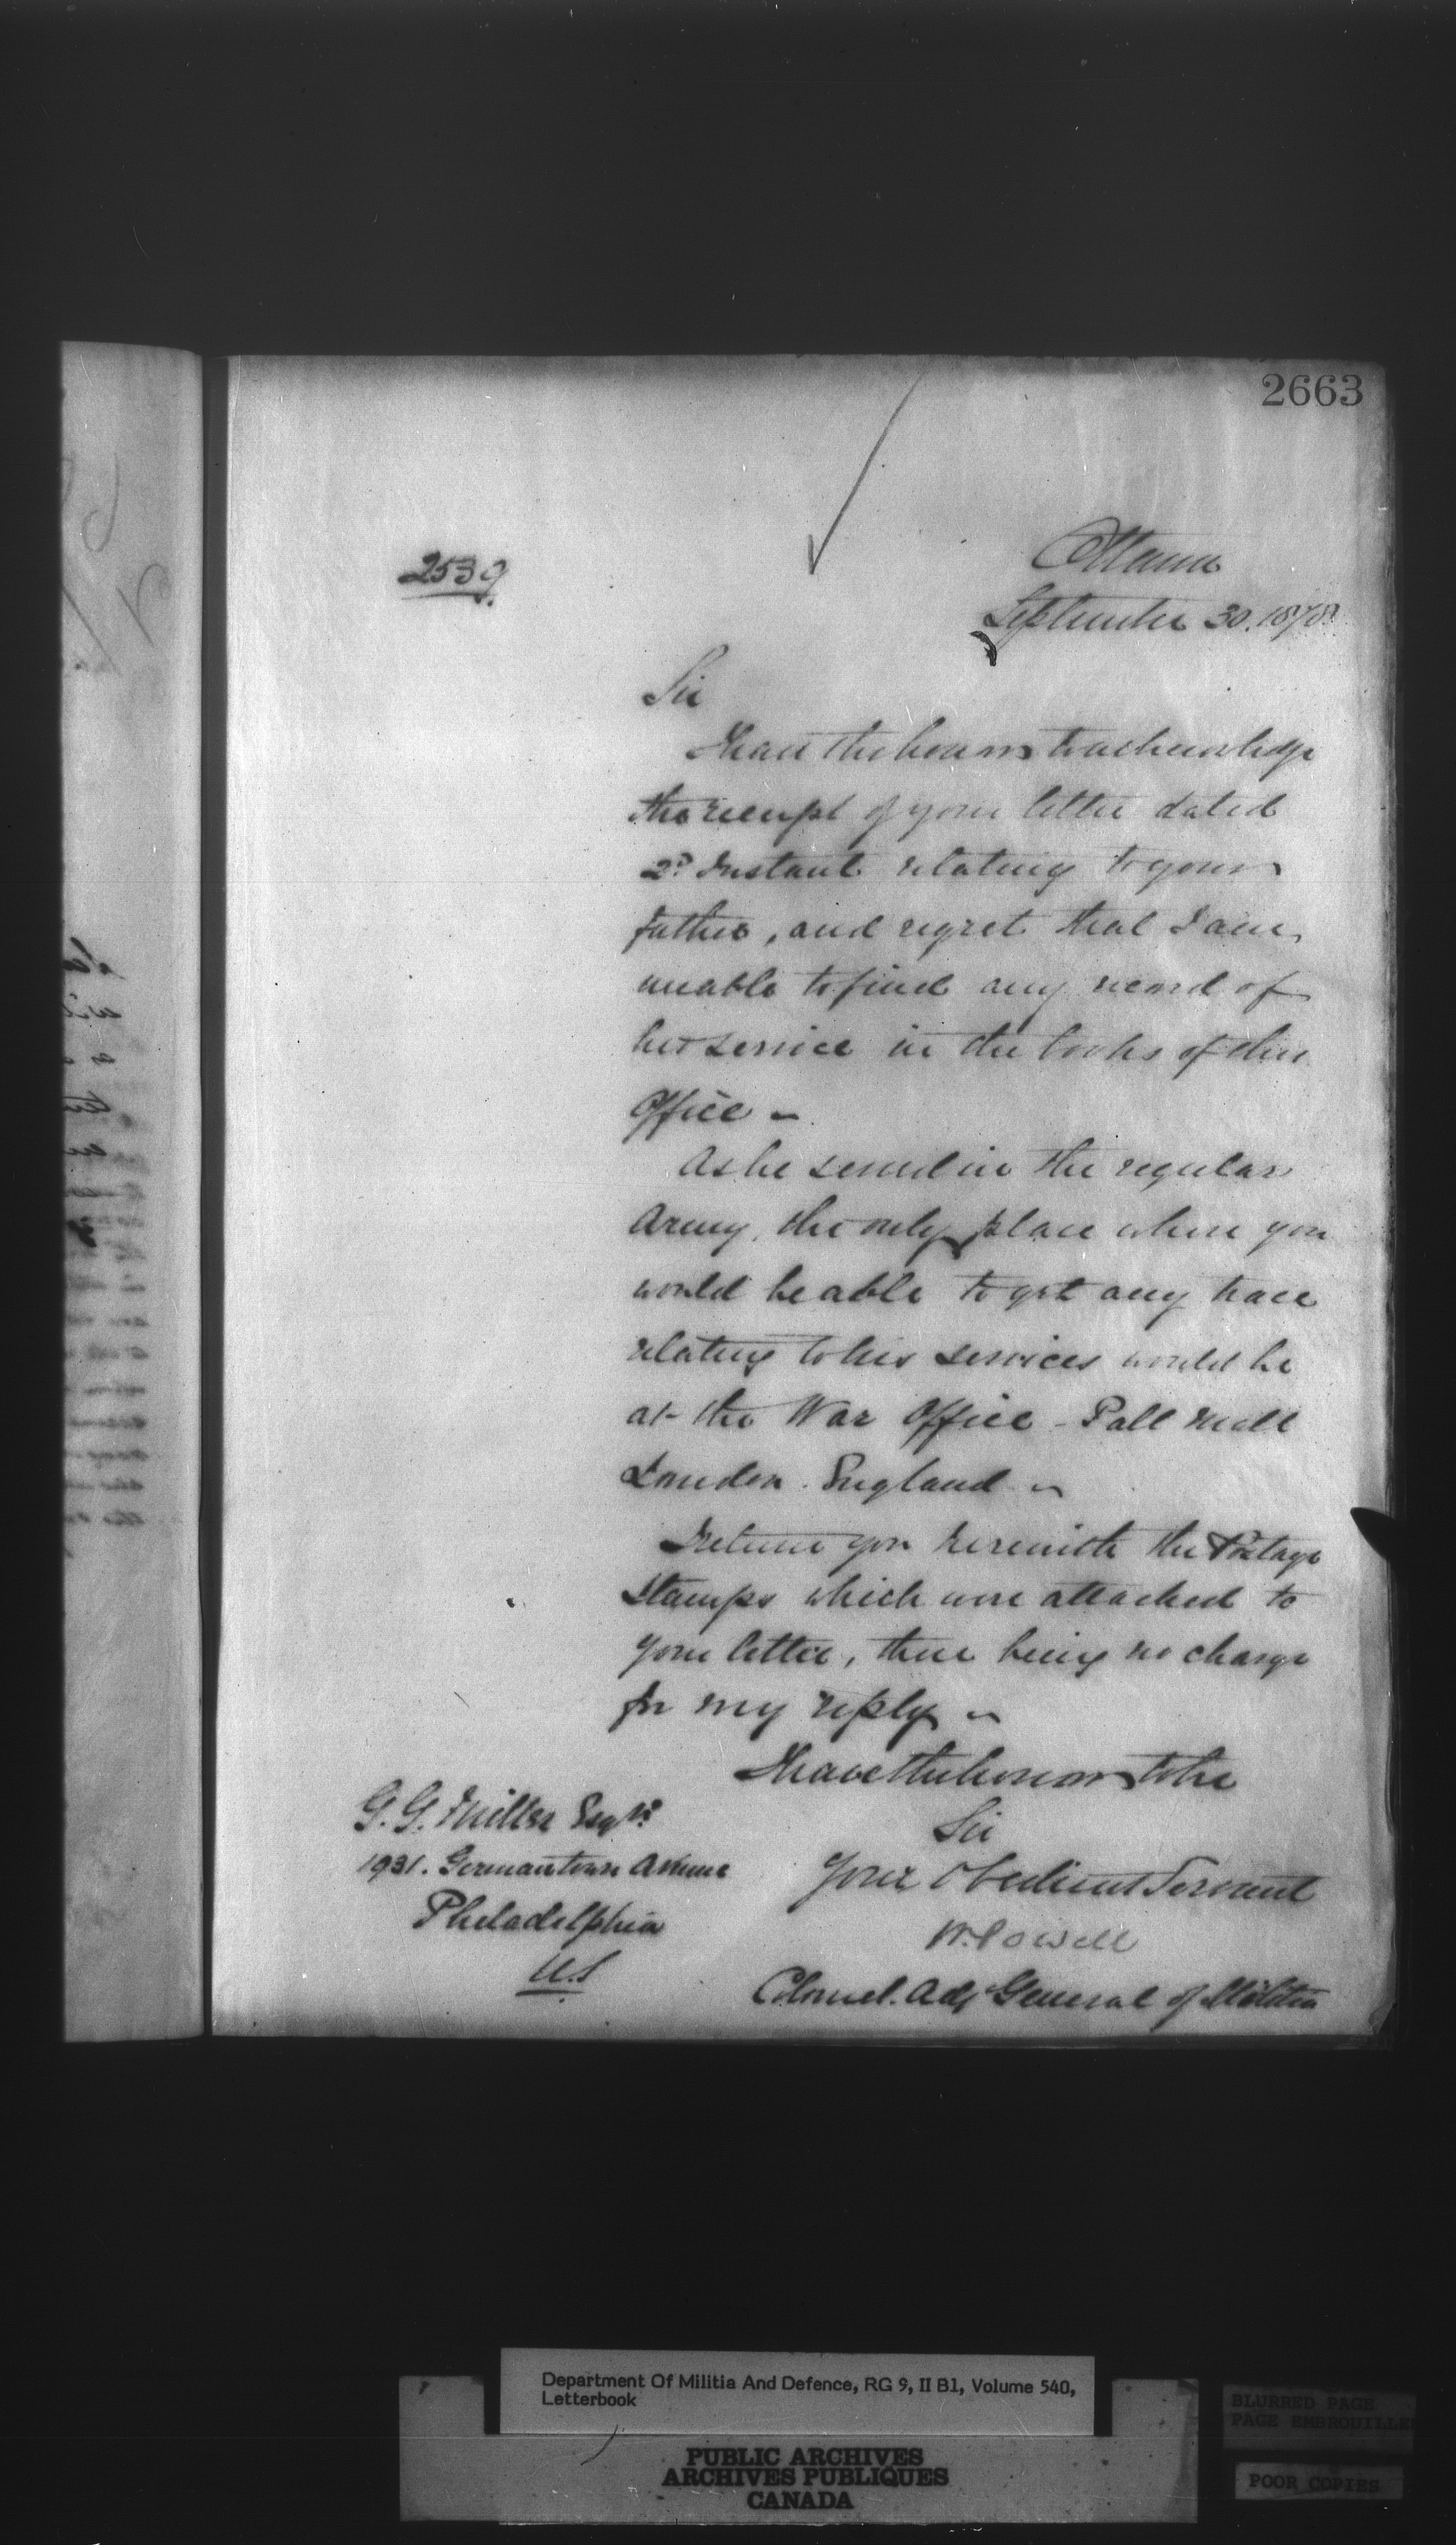 2663
2539
Ottawa
September 30. 1878
Sir
I have the honour to acknowledge
the receipt of your letter dated
2d Instant relating to your
father, and regret that I am
unable to find any record of
his service in the books of this
Office -
As he served in the regular
Army, the only place where you
would be able to get any trace
relating to his services would be
at the War Office - Pall Mall
London. England -
I return you herewith the Postage
Stamps which were attached to
your letter, there being no charge
for my reply -
I have the honour to be
Sir
Your Obedient Servant
W. Powell
Colonel. Adj General of Militia
G. G. Miller Esqre
1931. Germantown Avenue
Philadelphia
U.S
Department Of Militia And Defence, RG 9, II B1, Volume 540,
Letterbook
PUBLIC ARCHIVES
ARCHIVES PUBLIQUES
CANADA
BLURRED PAGE
PAGE EMBROUILLEE
POOR COPIES